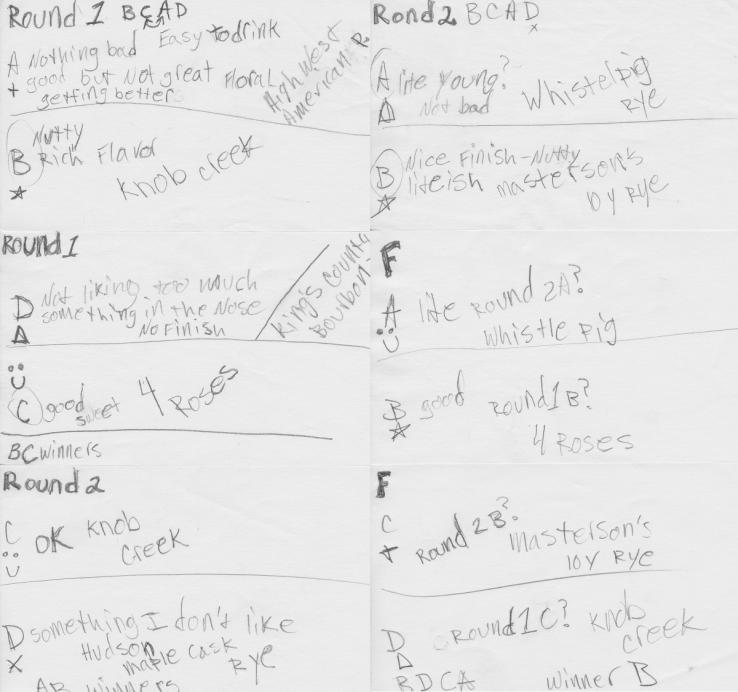 Round 1 BCAD
Easy to drink
A Nothing bad
+ good but Not great Floral
getting better
High West
American
Nutty
B Rich Flavor
Knob creek
Rond 2 BCAD
x
A lite young?
Not bad
Whistelpig
Rye
B Nice Finish-Nutty
liteish masterson's
10 y Rye
Round 1
Not liking too much
D something in the Nose
No Finish
King's County
Bourbon
C good
sweet
4 Roses
BC winners
F
A lite Round 2A?
Whistle pig
B good Round 1B?
4 Roses
Round 2
C OK Knob
Creek
D something I don't like
X Hudson
maple cask
Rye
AB winners
F
C
+ Round 2B?
Masterson's
10Y Rye
D Round 1C? Knob
creek
BDCA winner B